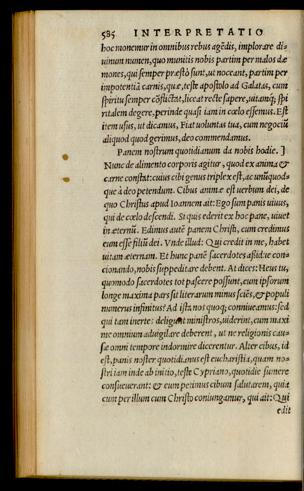 585 INTERPRETATIO
hoc monemur in omnibus rebus agẽdis, implorare di-
uinum numen, quo munitis nobis partim per malos dæ
mones, qui semper præstò sunt, ut noceant, partim per
impotentiã carnis, quæ, teste apostolo ad Galatas, cum
spiritu semper cõflictat, liceat recte sapere, uitamq́; spi
ritalem degere, perinde quasi iam in cœlo essemus. Est
item usus, ut dicamus, Fiat uoluntas tua, cum negociũ
aliquod quod gerimus, deo commendamus.
Panem nostrum quotidianum da nobis hodie. ]
Nunc de alimento corporis agitur, quod ex anima &
carne constat: cuius cibi genus triplex est, ac unũquod-
que à deo petendum. Cibus animæ est uerbum dei, de
quo Christus apud Ioannem ait: Ego sum panis uiuus,
qui de cœlo descendi. Si quis ederit ex hoc pane, uiuet
in æternũ. Edimus autẽ panem Christi, cum credimus
eum esse filiũ dei. Vnde illud: Qui credit in me, habet
uitam æternam. Et hunc panẽ sacerdotes assidue con-
cionando, nobis suppeditare debent. At dices: Heus tu,
quomodo sacerdotes tot pascere possunt, cum ipsorum
longe maxima pars sit literarum minus sciẽs, & populi
numerus infinitus? Ad ista nos quoq; conniueamus: sed
qui tam inerte: deligunt ministros, uiderint, cum maxi
me omnium aduigilare deberent, ut ne religionis cau-
sæ omni tempore indormire dicerentur. Alter cibus, id
est, panis noster quotidianus est eucharistia, quam no-
stri iam inde ab initio, teste Cypriano, quotidie sumere
consueuerant: & eum petimus cibum salutarem, quia
cum per illum cum Christo coniungamur, qui ait: Qui
edit